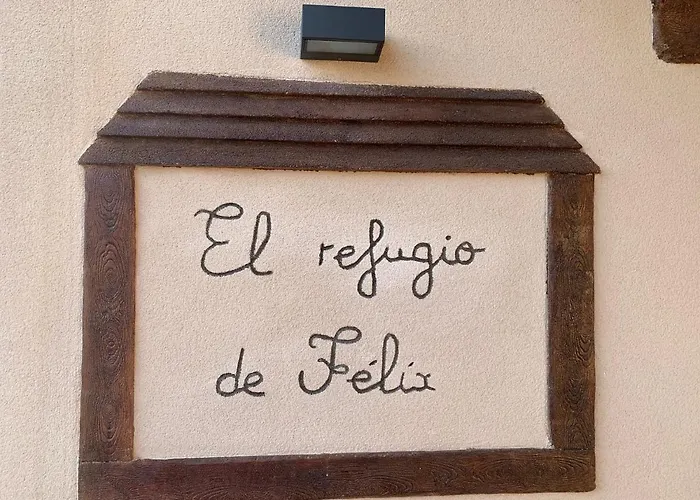 El refugio
de Félix